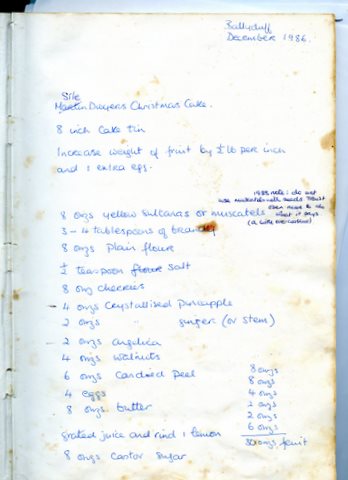 Ballyduff
December 1986.
Sile
Martin Dwyers Christmas Cake.
8 inch Cake tin
Increase weight of fruit by ½ lb per inch
and 1 extra egg.
1988 note: do not
use muscatels with seeds
8 ozs yellow Sultanas or muscatels
3-4 tablespoons of brandy
8 ozs Plain flour
½ teaspoon flour Salt
8 ozs cherries
4 ozs Crystallised Pineapple
2 ozs " ginger (or stem)
2 ozs angelica
4 ozs walnuts
6 ozs Candied Peel
4 eggs
8 ozs butter
grated juice and rind 1 lemon
8 ozs Castor Sugar
8 ozs
8 ozs
4 ozs
2 ozs
2 ozs
6 ozs
30 ozs fruit